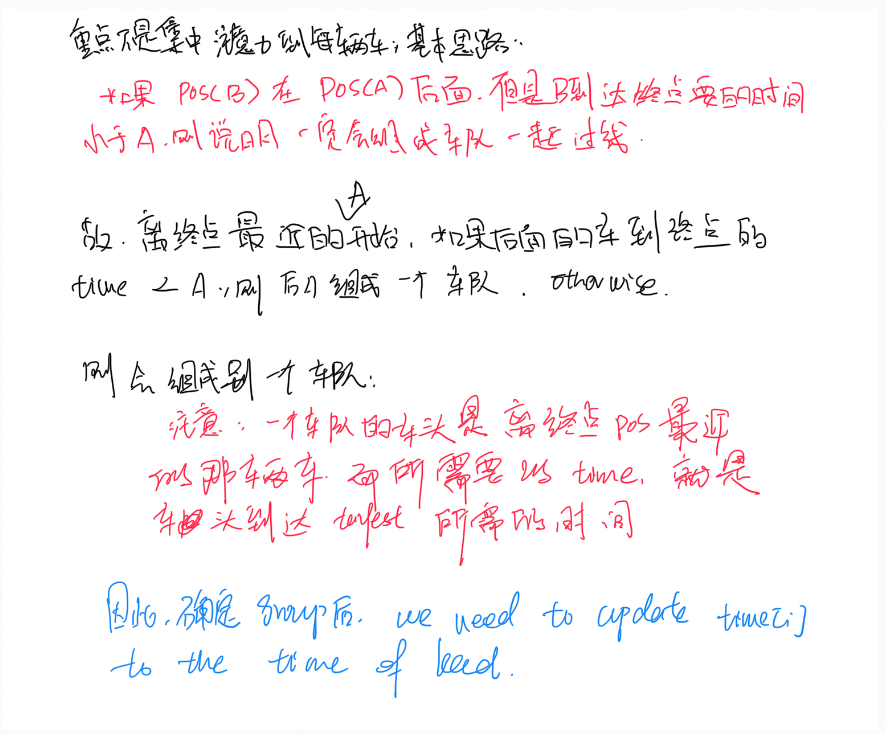 重点不是集中注意力到每辆车，基本思路：
如果 pos(B) 在 pos(A) 后面. 但是B到达终点要的时间
小于A. 则说明 一定会组成车队 一起过线.
A
故. 离终点最近的开始. 如果后面的车到终点的
time < A，则 后 组成一个车队. otherwise.
则会组成到一个车队：
注意：一个车队的车头是离终点pos最近
的那车辆车. 而所需要的time. 就是
车头到达 target 所需的时间
因此. 确定 group后. we need to update time[i]
to the time of head.